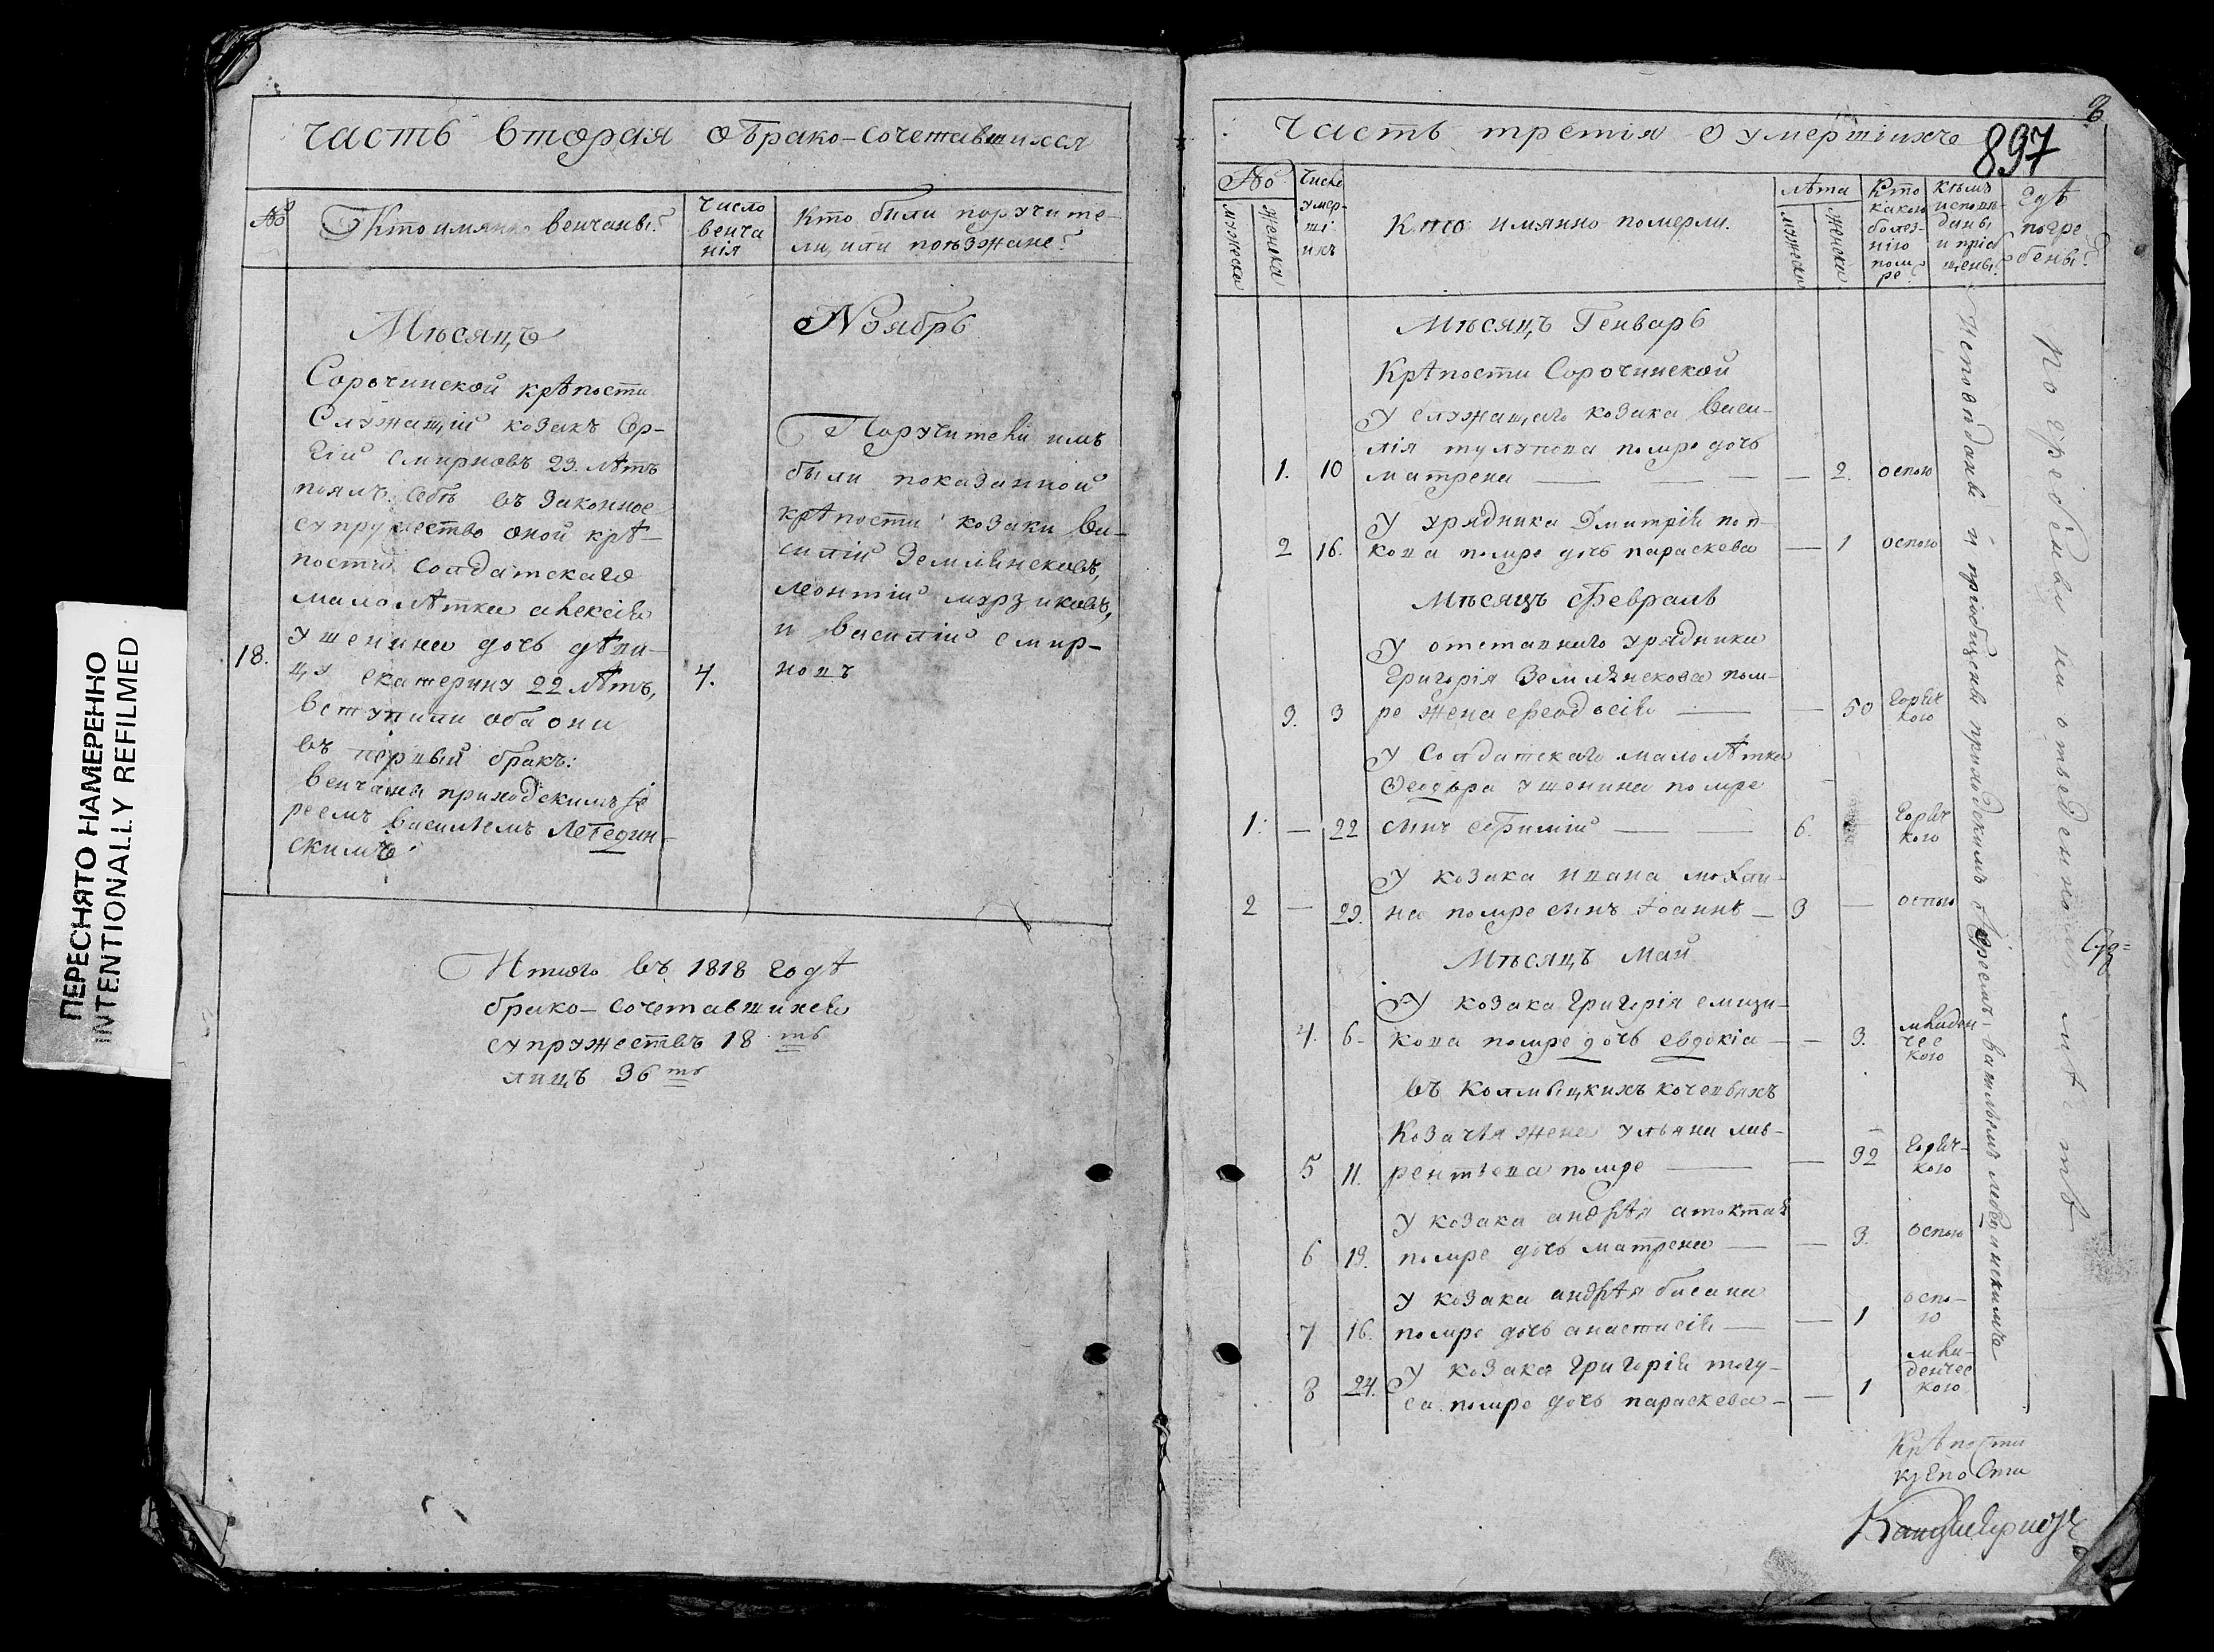 ПЕРЕСНЯТО НАМЕРЕННО
INTENTIONALLY REFILMED
Часть вторая о Брако-сочетавшихся
№
Кто имянно венчаны?
Число
венча
нія
Кто были поручите-
ли, или поѣзжане?
Мѣсяцъ
Ноябрь
Сорочинской крѣпости
Служащій козакъ Сер-
гій Смирновъ 23. лѣтъ
поялъ себѣ въ законное
супружество оной крѣ-
пости солдатскаго
малолѣтка алексѣя
ушенина дочь дѣви-
18.
цу екатерину 22 лѣтъ,
4.
вступили оба они
въ первый бракъ:
венчаны приходскимъ іе
реемъ василіемъ Лебедин-
скимъ
Поручители имъ
были показанной
крѣпости козаки Ва-
силій Землянсковъ,
леонтій мурзиковъ,
и василій смир-
новъ
Итого въ 1818 годѣ
брако-сочетавшихся
супружествъ 18 ть
лицъ 36 ть
Часть третія о умершихъ
897
№
мужеска
женска
Число
умер-
ші
ихъ
Кто имянно померли.
лѣта
мужеска
женска
Кто
какою
болез-
нію
пом-
ре
кѣмъ
исповѣ-
даны
и пріоб
щены?
Гдѣ
погре
бены?
Мѣсяцъ Генварь
Крѣпости Сорочинской
У служащаго козака Васи-
лія тулупова помре дочь
1. 10 матрена — — 2. оспою
У урядника Дмитрія поп-
2 16. кова помре дочь параскева — 1 оспою
Мѣсяцъ Февраль
У отставнаго урядника
Григорія Землянскова пом-
3. 3 ре жена феодосія — — 50 Горяч
кою
У Солдатскаго малолѣтка
Ѳеодора ушенина помре
1. — 22 сынъ ефимій — 6. — Горяч
кою
У козака ивана
2 — 23. на помре сынъ Іоаннъ — 3 — оспою
Мѣсяцъ Май
У козака Григорія
4. 6. кова помре дочь евдокіа — — 3. младен
чес
кою
въ Колмыцкихъ кочевьяхъ
Козачья жена ульяна лав-
5 11. рентьева помре — — 32 Горяч-
кою
У козака андрѣя
6 13. помре дочь матрена — — 3. оспою
У козака андрѣя басана
7 16. помре дочь анастасія — — 1 оспо-
ю
У козака Григорія
8 24. са помре дочь параскева — — 1 мла-
денчес
кою
Исповѣданы и пріобщены приходскимъ Іереемъ василіемъ лебединскимъ
Погребены на отведенномъ мѣстѣ
Крѣпости